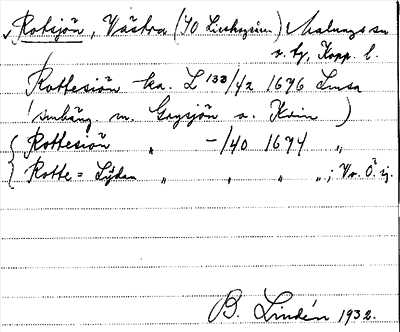 Rotsjön, Västra (40 Lisskogsåsen.) Malungs sn
v. tg, Kopp. l.
Rottesiön ka. L 133/42 1696 Lusa
(samhäng. m. Grysjön o. Krin)
Rottesiön " -/40 1694 "
Rotte=Siöen " " " "; Vr. Ö ej.
B. Lindén 1932.